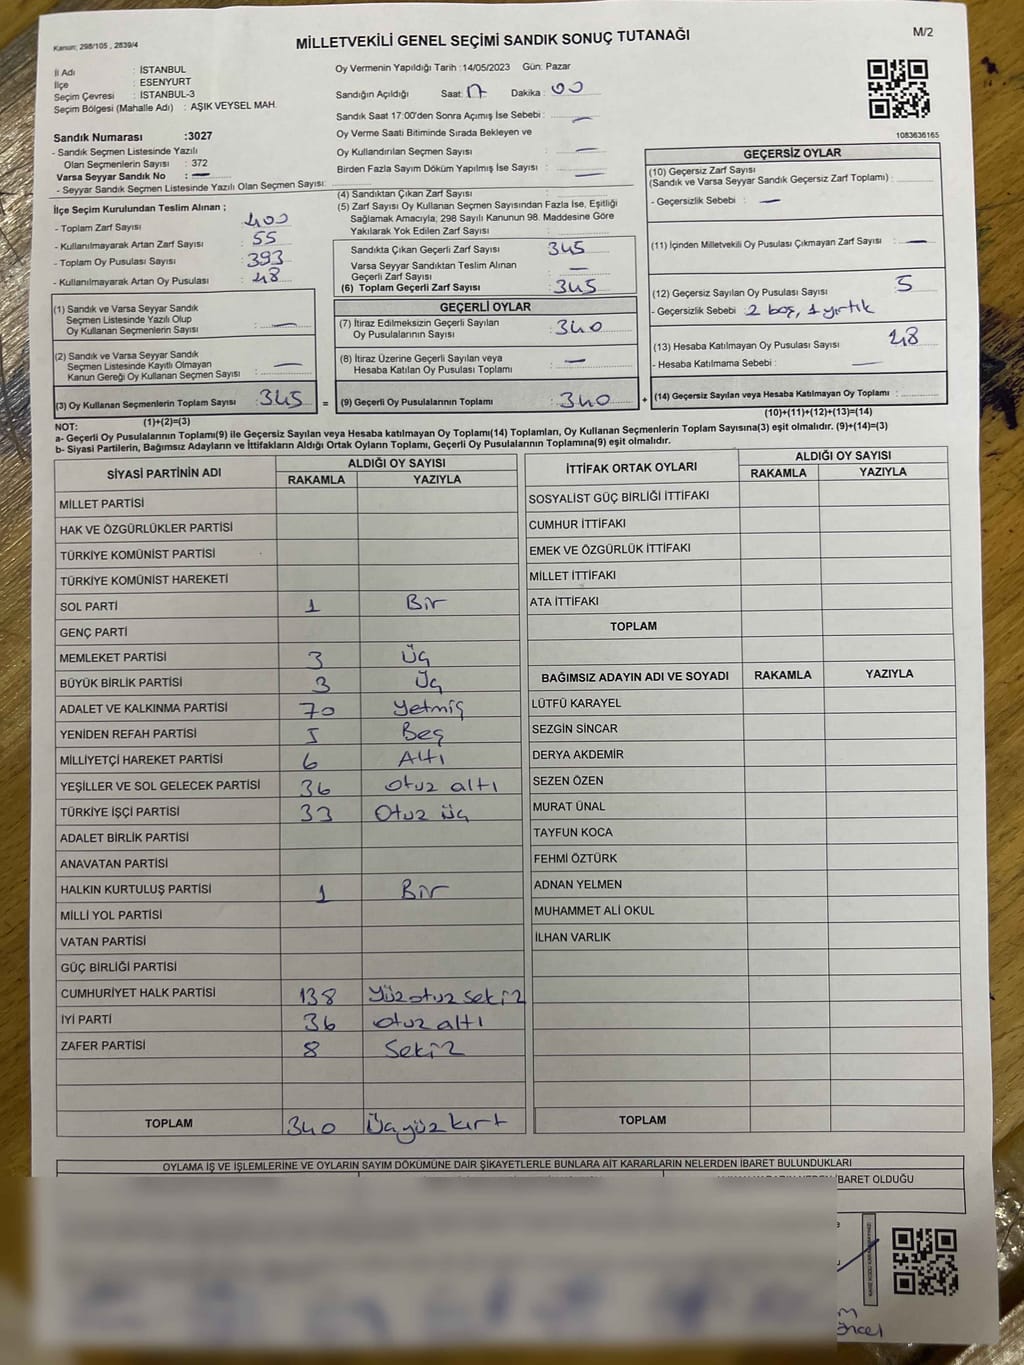 Kanun; 298/105 , 2839/4
MİLLETVEKİLİ GENEL SEÇİMİ SANDIK SONUÇ TUTANAĞI
M/2
İl Adı : İSTANBUL
İlçe : ESENYURT
Seçim Çevresi : İSTANBUL-3
Seçim Bölgesi (Mahalle Adı) : AŞIK VEYSEL MAH.
Sandık Numarası :3027
- Sandık Seçmen Listesinde Yazılı
Olan Seçmenlerin Sayısı : 372
Varsa Seyyar Sandık No : —
- Seyyar Sandık Seçmen Listesinde Yazılı Olan Seçmen Sayısı:
Oy Vermenin Yapıldığı Tarih :14/05/2023 Gün: Pazar
Sandığın Açıldığı Saat: 17 Dakika: 00
Sandık Saat 17:00'den Sonra Açımış İse Sebebi : —
Oy Verme Saati Bitiminde Sırada Bekleyen ve
Oy Kullandırılan Seçmen Sayısı : —
Birden Fazla Sayım Döküm Yapılmış İse Sayısı : —
1083636165
İlçe Seçim Kurulundan Teslim Alınan ;
- Toplam Zarf Sayısı : 400
- Kullanılmayarak Artan Zarf Sayısı : 55
- Toplam Oy Pusulası Sayısı : 393
- Kullanılmayarak Artan Oy Pusulası : 48
(1) Sandık ve Varsa Seyyar Sandık
Seçmen Listesinde Yazılı Olup
Oy Kullanan Seçmenlerin Sayısı : —
(2) Sandık ve Varsa Seyyar Sandık
Seçmen Listesinde Kayıtlı Olmayan
Kanun Gereği Oy Kullanan Seçmen Sayısı : —
(3) Oy Kullanan Seçmenlerin Toplam Sayısı : 345 =
(1)+(2)=(3)
(4) Sandıktan Çıkan Zarf Sayısı :
(5) Zarf Sayısı Oy Kullanan Seçmen Sayısından Fazla İse, Eşitliği
Sağlamak Amacıyla; 298 Sayılı Kanunun 98. Maddesine Göre
Yakılarak Yok Edilen Zarf Sayısı :
Sandıkta Çıkan Geçerli Zarf Sayısı : 345
Varsa Seyyar Sandıktan Teslim Alınan
Geçerli Zarf Sayısı : —
(6) Toplam Geçerli Zarf Sayısı : 345
GEÇERLİ OYLAR
(7) İtiraz Edilmeksizin Geçerli Sayılan
Oy Pusulalarının Sayısı : 340
(8) İtiraz Üzerine Geçerli Sayılan veya
Hesaba Katılan Oy Pusulası Toplamı : —
(9) Geçerli Oy Pusulalarının Toplamı : 340 +
GEÇERSİZ OYLAR
(10) Geçersiz Zarf Sayısı
(Sandık ve Varsa Seyyar Sandık Geçersiz Zarf Toplamı) :
- Geçersizlik Sebebi : —
(11) İçinden Milletvekili Oy Pusulası Çıkmayan Zarf Sayısı : —
(12) Geçersiz Sayılan Oy Pusulası Sayısı : 5
- Geçersizlik Sebebi : 2 boş, 1 yırtık
(13) Hesaba Katılmayan Oy Pusulası Sayısı : 48
- Hesaba Katılmama Sebebi : —
(14) Geçersiz Sayılan veya Hesaba Katılmayan Oy Toplamı :
(10)+(11)+(12)+(13)=(14)
NOT:
a- Geçerli Oy Pusulalarının Toplamı(9) ile Geçersiz Sayılan veya Hesaba Katılmayan Oy Toplamı(14) Toplamları, Oy Kullanan Seçmenlerin Toplam Sayısına(3) eşit olmalıdır. (9)+(14)=(3)
b- Siyasi Partilerin, Bağımsız Adayların ve İttifakların Aldığı Ortak Oyların Toplamı, Geçerli Oy Pusulalarının Toplamına(9) eşit olmalıdır.
SİYASİ PARTİNİN ADI ALDIĞI OY SAYISI
RAKAMLA YAZIYLA
MİLLET PARTİSİ
HAK VE ÖZGÜRLÜKLER PARTİSİ
TÜRKİYE KOMÜNİST PARTİSİ
TÜRKİYE KOMÜNİST HAREKETİ
SOL PARTİ 1 Bir
GENÇ PARTİ
MEMLEKET PARTİSİ 3 Üç
BÜYÜK BİRLİK PARTİSİ 3 Üç
ADALET VE KALKINMA PARTİSİ 70 Yetmiş
YENİDEN REFAH PARTİSİ 5 Beş
MİLLİYETÇİ HAREKET PARTİSİ 6 Altı
YEŞİLLER VE SOL GELECEK PARTİSİ 36 otuz altı
TÜRKİYE İŞÇİ PARTİSİ 33 Otuz üç
ADALET BİRLİK PARTİSİ
ANAVATAN PARTİSİ
HALKIN KURTULUŞ PARTİSİ 1 Bir
MİLLİ YOL PARTİSİ
VATAN PARTİSİ
GÜÇ BİRLİĞİ PARTİSİ
CUMHURİYET HALK PARTİSİ 138 Yüz otuz sekiz
İYİ PARTİ 36 otuz altı
ZAFER PARTİSİ 8 Sekiz
TOPLAM 340 Üçyüz kırk
İTTİFAK ORTAK OYLARI ALDIĞI OY SAYISI
RAKAMLA YAZIYLA
SOSYALİST GÜÇ BİRLİĞİ İTTİFAKI
CUMHUR İTTİFAKI
EMEK VE ÖZGÜRLÜK İTTİFAKI
MİLLET İTTİFAKI
ATA İTTİFAKI
TOPLAM
BAĞIMSIZ ADAYIN ADI VE SOYADI RAKAMLA YAZIYLA
LÜTFÜ KARAYEL
SEZGİN SİNCAR
DERYA AKDEMİR
SEZEN ÖZEN
MURAT ÜNAL
TAYFUN KOCA
FEHMİ ÖZTÜRK
ADNAN YELMEN
MUHAMMET ALİ OKUL
İLHAN VARLIK
TOPLAM
OYLAMA İŞ VE İŞLEMLERİNE VE OYLARIN SAYIM DÖKÜMÜNE DAİR ŞİKAYETLERLE BUNLARA AİT KARARLARIN NELERDEN İBARET BULUNDUKLARI
İBARET OLDUĞU